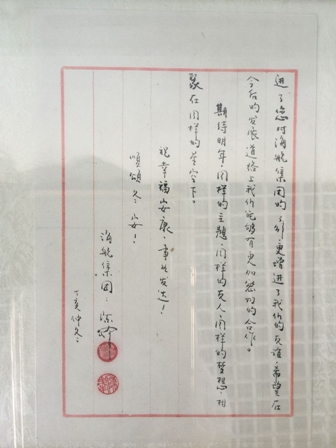 进了您对海航集团的 更增进了我们的友谊,希望在
今后的发展道路上我们能够有更加密切的合作。
期待明年,同样的主题、同样的友人、同样的梦想,相
聚在同样的星空下。
祝幸福安康、事业发达!
順頌冬安!
海航集团:陈峰
丁亥仲冬.